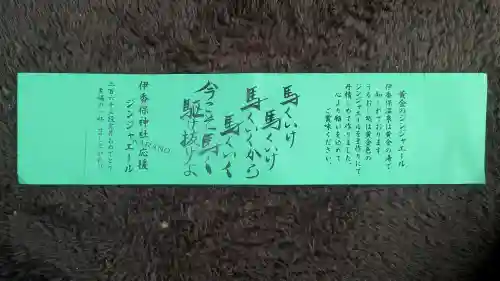 黄金のジンジャエール
伊香保温泉は黄金の湯で
知られております
うるおし処は黄金色の
ジンジャエールを手作りにて
丹精しめて作りました。
心より願いを込めて
ご賞味ください。
馬くいけ
馬くいけ
馬くいくから
馬くいく
今こそ馬い
駆け抜けよ
伊香保神社応援
ジンジャエール